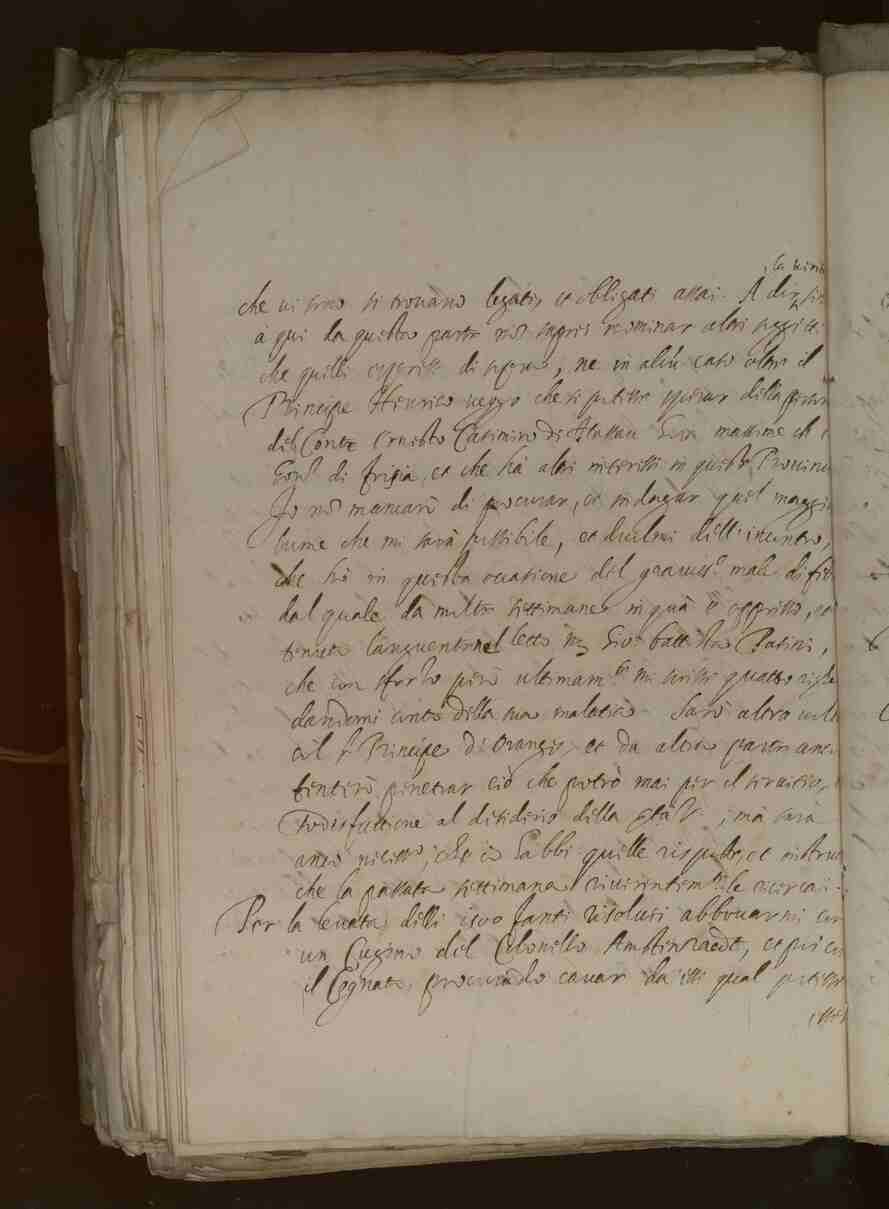 che vi sono si trovano legati, et obligati assai. A dir
à qui da questa parte non saprei nominar altri soggetti
che quelli espressi di sopra, ne in alcun caso oltre il
Principe Henrico veggo che si potesse sperar della person
del Conte Ernesto Casimiro di Nassau massime ch'è
Gov.r di frisia, et che hà altri interessi in queste Provinc
Io non mancarò di procurar, et indagar quel maggior
lume che mi sarà possibile, et duolmi dell'incontro,
che hò in questa occasione del gravess.o male di
dal quale da molte settimane in quà è oppresso, et
tenuto languente nel letto Gio: battista Pasini,
che con sforzo però ultimam.te mi scrisse quattro righe
dandomi conto della sua malatia. Sarò altra volta
col s.r Principe di Oranges et da altra parte anco
tenterò penetrar ciò che potrò mai per il servitio,
sodisfattione al desiderio della ; mà sarà
anco necess.o, che io habbi quelle risposte, et instrut
che la passata settimana riverentem.te le ricercai.
Per la levata delli fanti risolsi abboccarmi con
un Cugino del Colonello Amstenraedt, et poi con
il Cognato, procurando cavar da essi qual potesse